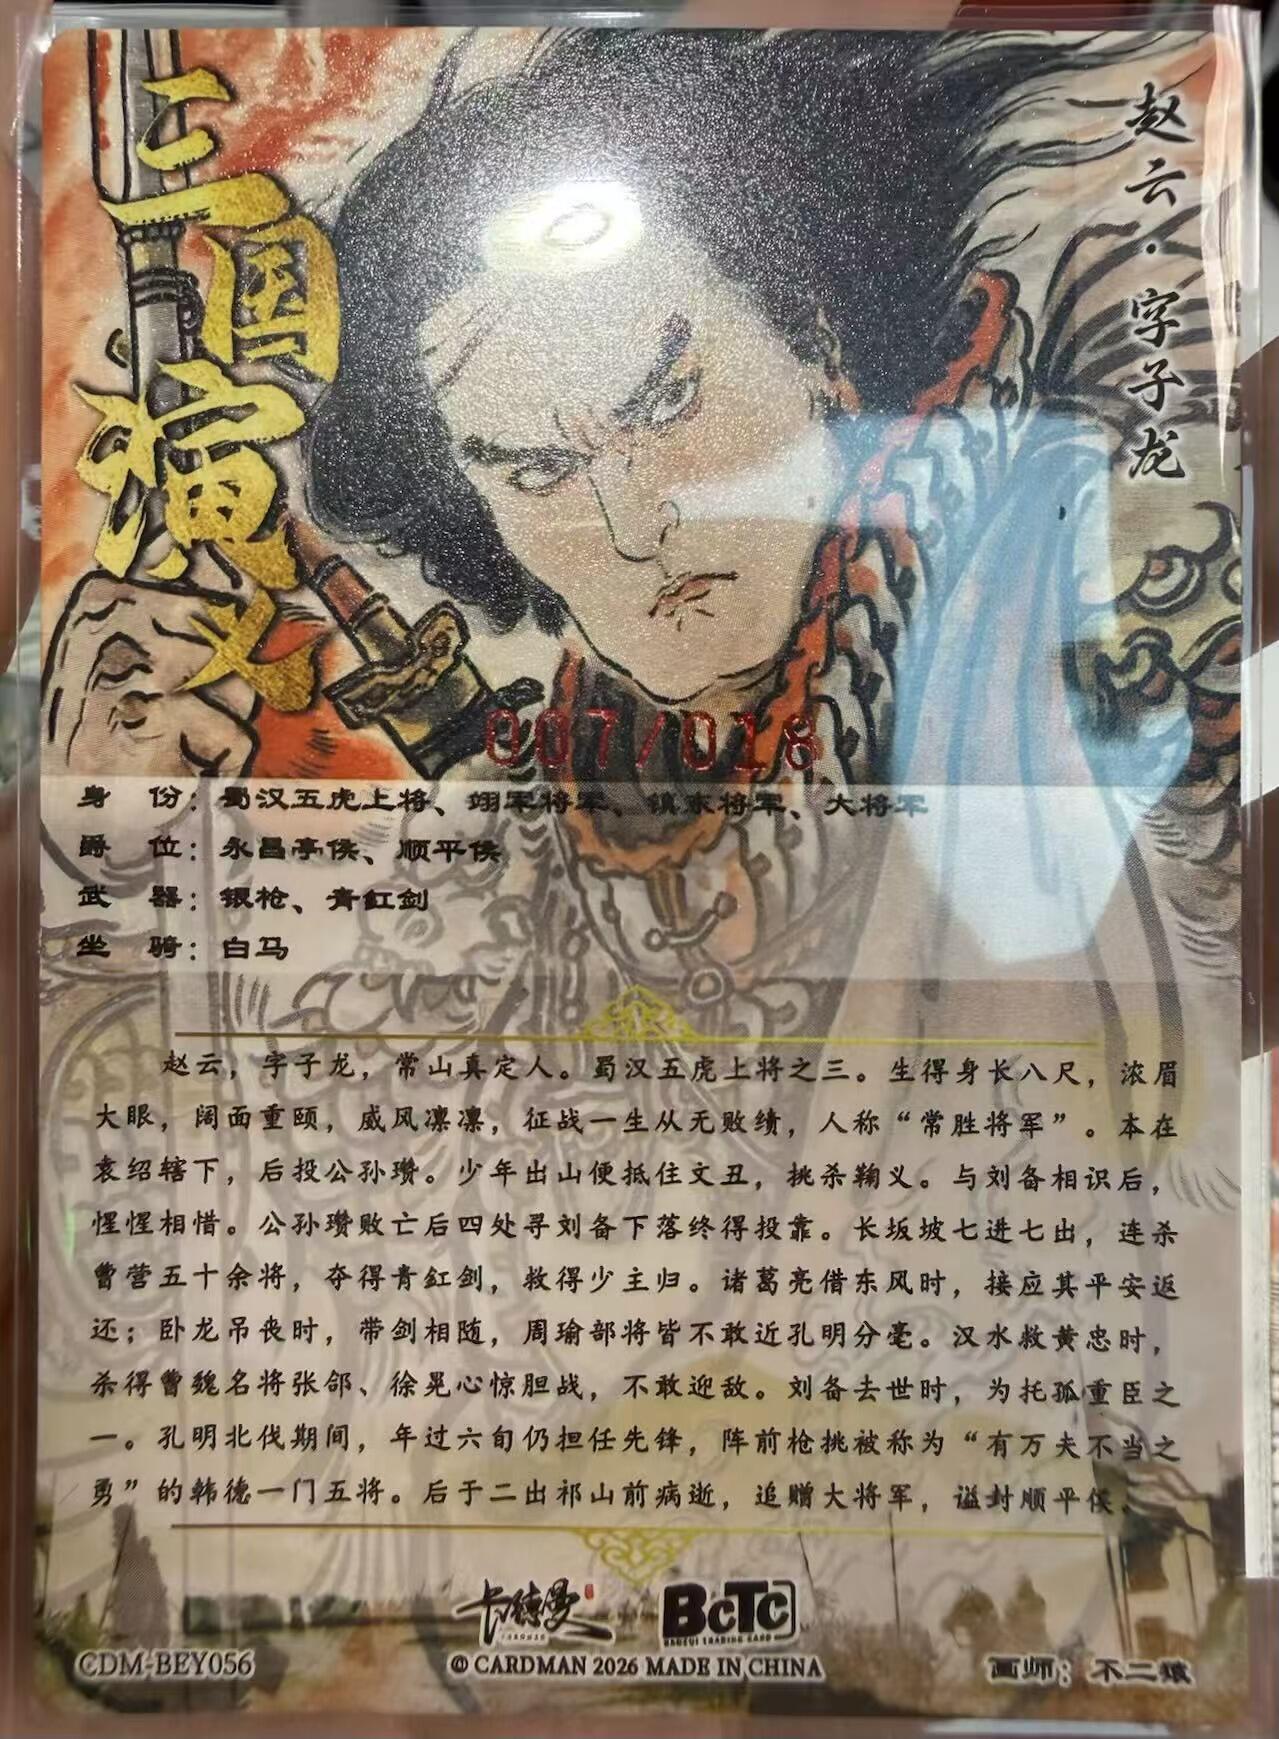 三国演义
赵云·字子龙
007/018
身　份：蜀汉五虎上将、翊军将军、镇东将军、大将军
爵　位：永昌亭侯、顺平侯
武　器：银枪、青釭剑
坐　骑：白马
赵云，字子龙，常山真定人。蜀汉五虎上将之三。生得身长八尺，浓眉
大眼，阔面重颐，威风凛凛，征战一生从无败绩，人称“常胜将军”。本在
袁绍辖下，后投公孙瓒。少年出山便抵住文丑，挑杀鞠义。与刘备相识后，
惺惺相惜。公孙瓒败亡后四处寻刘备下落终得投靠。长坂坡七进七出，连杀
曹营五十余将，夺得青釭剑，救得少主归。诸葛亮借东风时，接应其平安返
还；卧龙吊丧时，带剑相随，周瑜部将皆不敢近孔明分毫。汉水救黄忠时，
杀得曹魏名将张郃、徐晃心惊胆战，不敢迎敌。刘备去世时，为托孤重臣之
一。孔明北伐期间，年过六旬仍担任先锋，阵前枪挑被称为“有万夫不当之
勇”的韩德一门五将。后于二出祁山前病逝，追赠大将军，谥封顺平侯。
卡德曼 BCTC
CDM-BEY056
© CARDMAN 2026 MADE IN CHINA
画师：不二猿